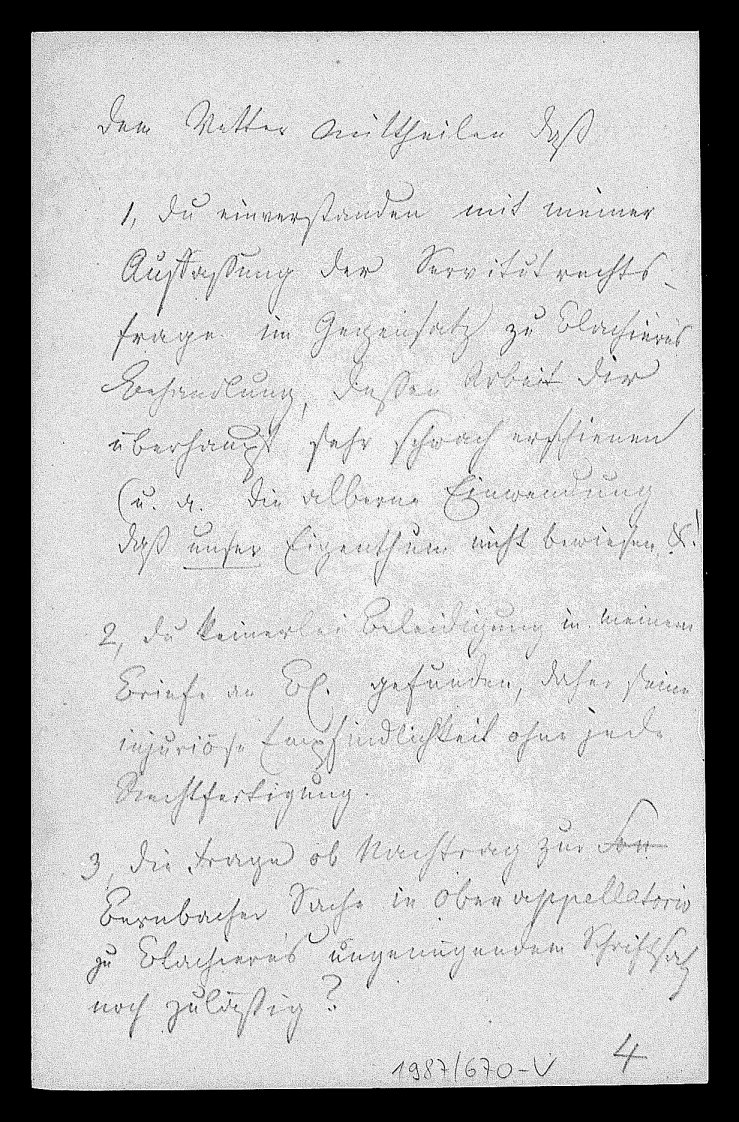 Dem Vetter mittheilen daß
1, Du einverstanden mit meiner
Auffassung der Servitutrechts-
frage im Gegensatz zu Blachiere's
Behandlung, dessen Arbeit Dir
überhaupt sehr schwach erschienen
(u. a. die alberne Einwendung
daß unser Eigenthum nicht bewiesen &!
2, Du keinerlei Beleidigung in meinem
Briefe an Bl. gefunden, daher seine
injuriöse Empfindlichkeit ohne jede
Rechtfertigung.
3, die Frage ob Nachtrag zur
Bernbacher Sache in Oberappellatorio
zu Blachiere's ungenügendem Schriftsatz
noch zulässig?
4
1987/670-V